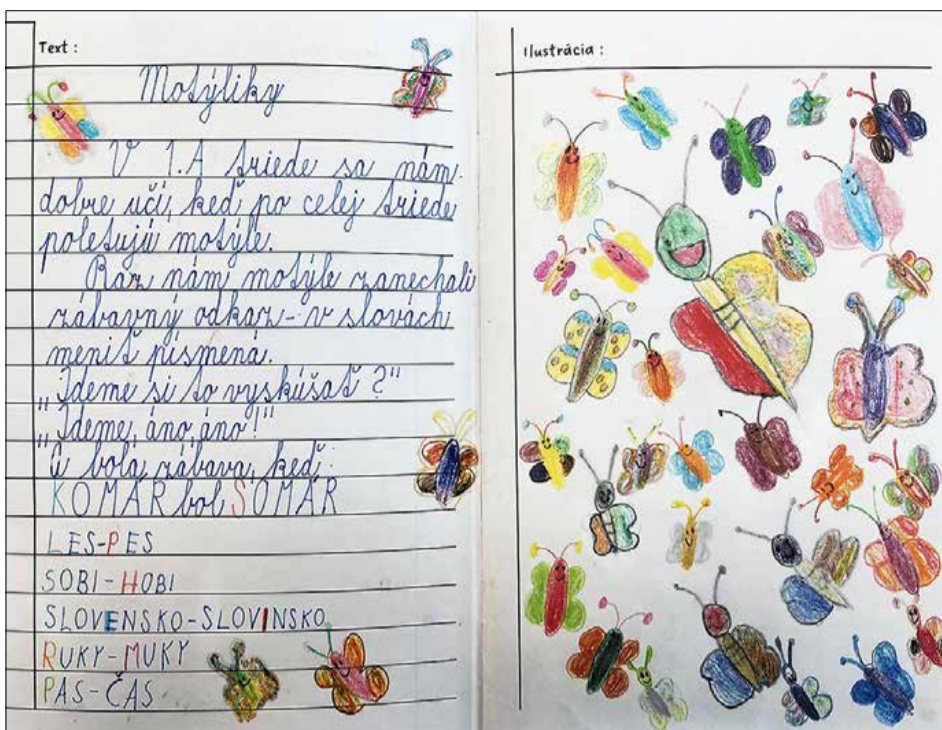 Text :
Motýliky
V 1.A triede sa nám
dobre učí, keď po celej triede
poletujú motýle.
Raz nám motýle zanechali
zábavný odkaz - v slovách
meniť písmená.
„Ideme si to vyskúšať ?"
„Ideme, áno, áno!"
A bola zábava, keď:
KOMÁR bol SOMÁR
LES-PES
SOBI-HOBI
SLOVENSKO-SLOVINSKO
RUKY-MUKY
PAS-ČAS
Ilustrácia :